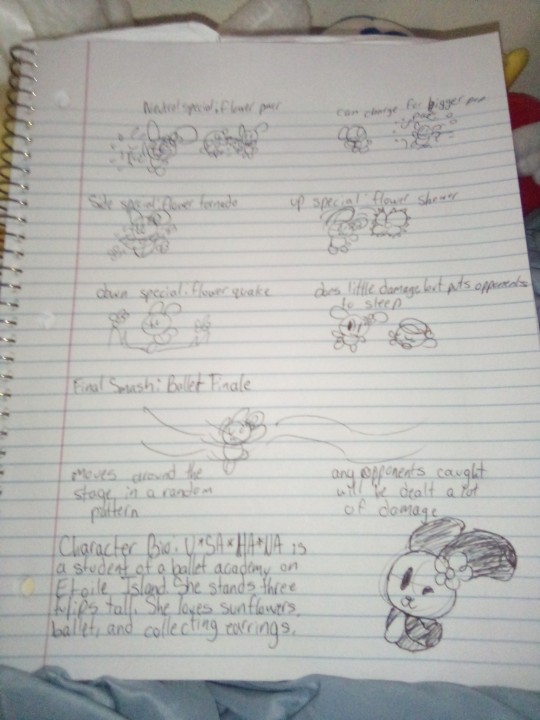 Neutral special: flower
can charge for bigger
Side special: flower tornado
up special: flower shower
down special: flower quake
does little damage but puts opponents
to sleep
Final Smash: Ballet Finale
moves around the
stage in a random
pattern
any opponents caught
will be dealt a lot
of damage
Character Bio: U*SA*HA*NA is
a student of a ballet academy on
Etoile Island. She stands three
tulips tall. She loves sunflowers,
ballet, and collecting earrings.